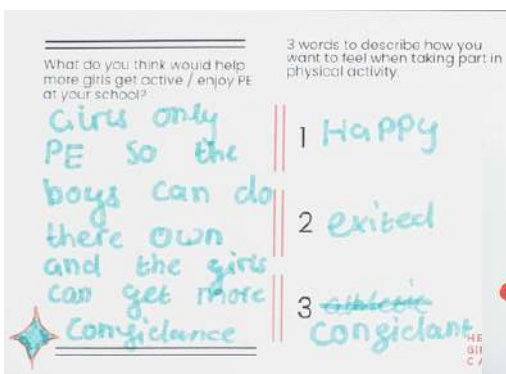 What do you think would help
more girls get active / enjoy PE
at your school?
Girls only
PE so the
boys can do
there own
and the girls
can get more
Congidance
3 words to describe how you
want to feel when taking part in
physical activity.
1 Happy
2 exited
3 athletic
Congidant